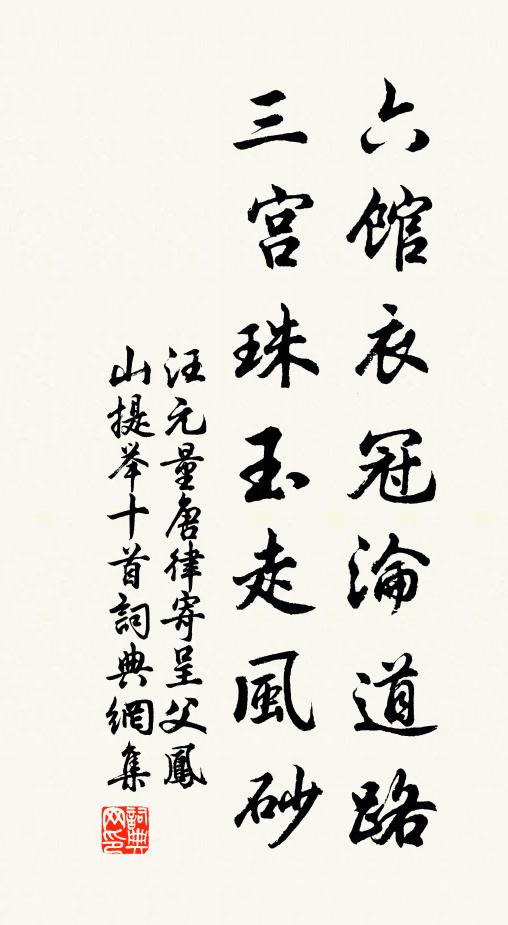 六馆衣冠淪道路
三宫珠玉走風砂
汪元量唐律寄呈父鳳
山提举十首詞典網集
詞典網印